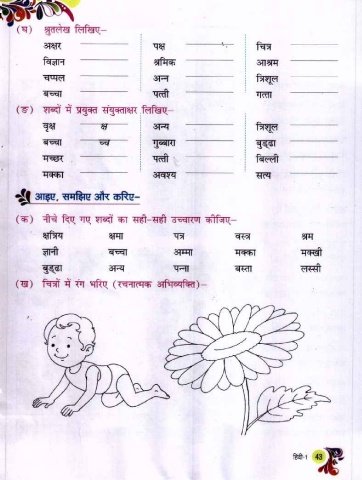 (घ) श्रुतलेख लिखिए–
अक्षर पक्ष चित्र
विज्ञान श्रमिक आश्रम
चप्पल अन्न त्रिशूल
बच्चा पत्ती गत्ता
(ङ) शब्दों में प्रयुक्त संयुक्ताक्षर लिखिए–
वृक्ष क्ष अन्य त्रिशूल
बच्चा च्च गुब्बारा बुड्ढा
मच्छर पत्ती बिल्ली
मक्का अवश्य सत्य
आइए, समझिए और करिए–
(क) नीचे दिए गए शब्दों का सही-सही उच्चारण कीजिए–
क्षत्रिय क्षमा पत्र वस्त्र श्रम
ज्ञानी बच्चा अम्मा मक्का मक्खी
बुड्ढा अन्य पन्ना बस्ता लस्सी
(ख) चित्रों में रंग भरिए (रचनात्मक अभिव्यक्ति)–
हिंदी-1 43